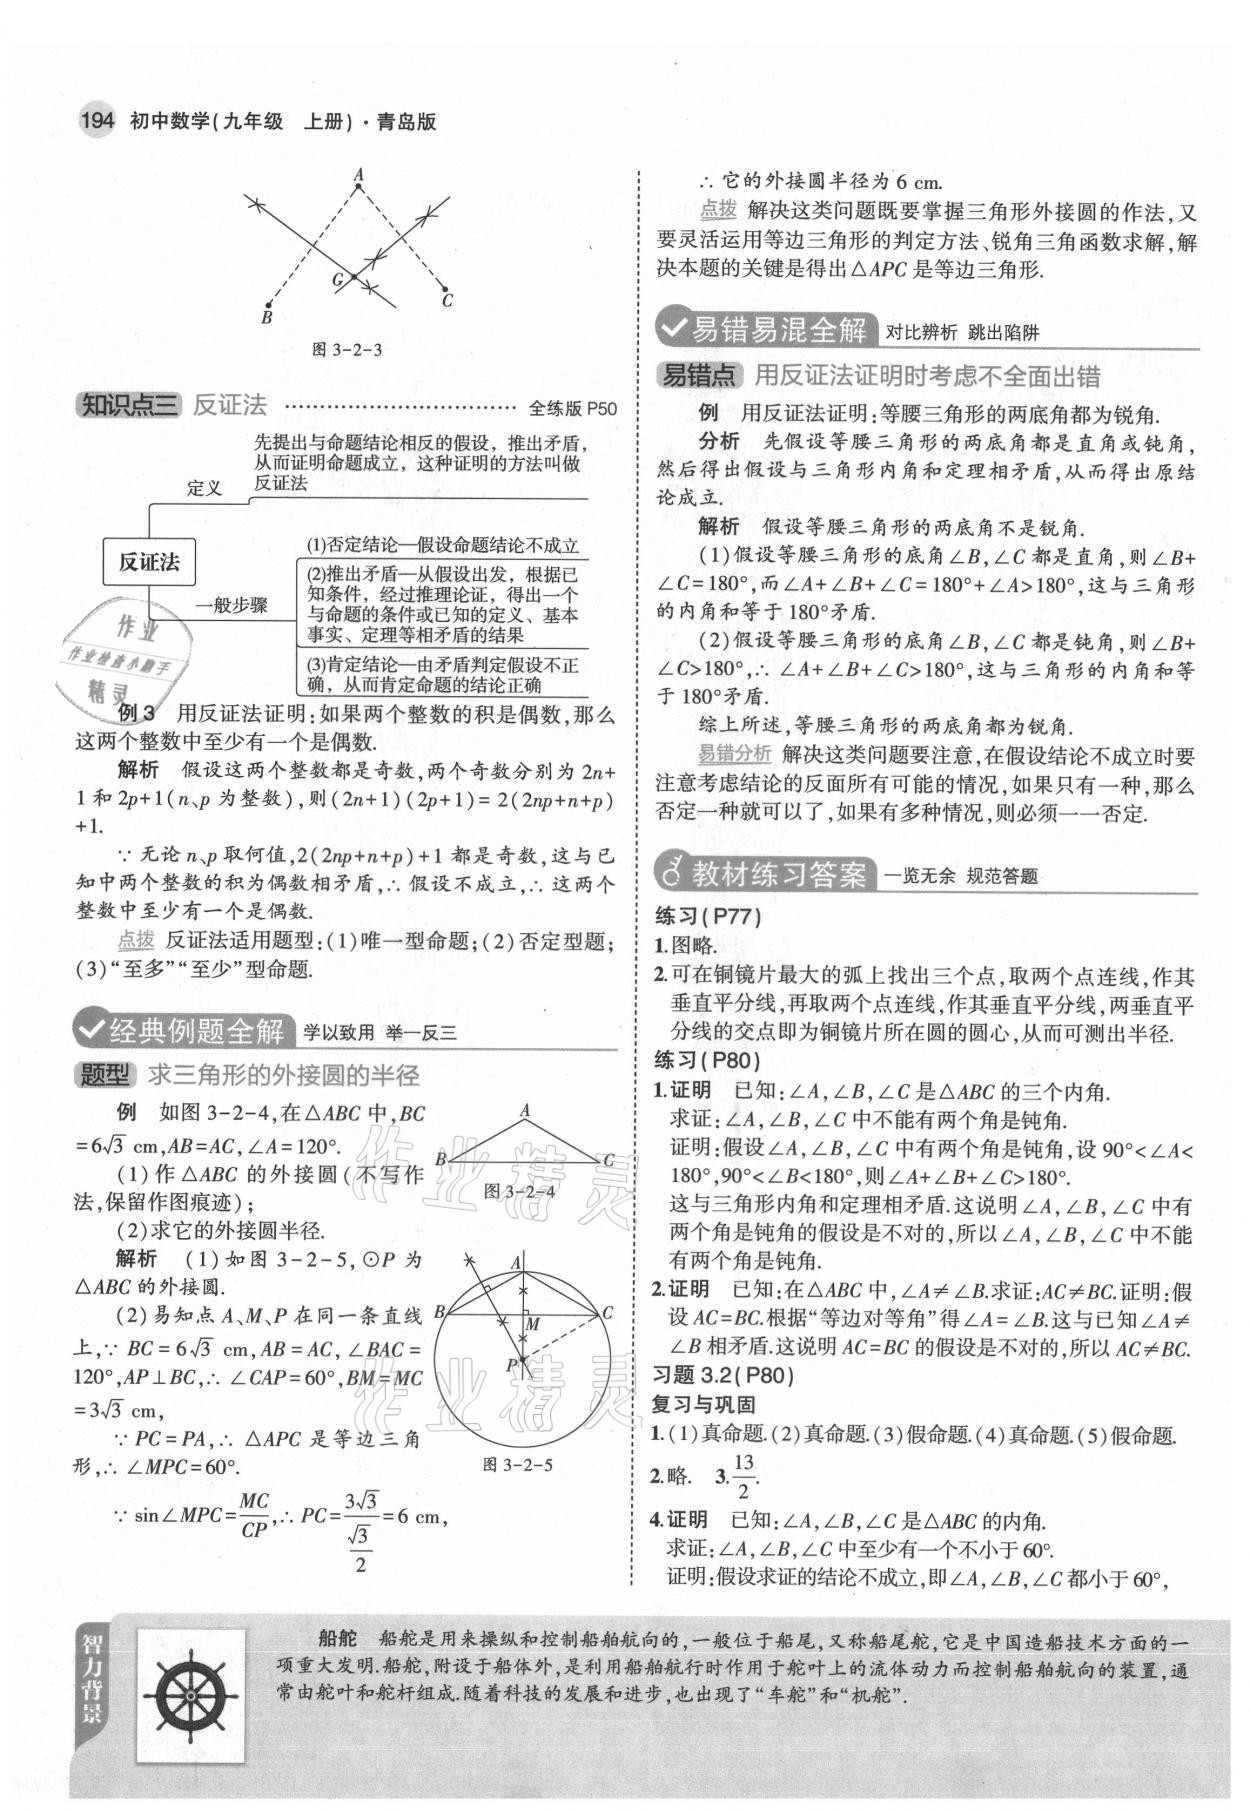 194 初中数学(九年级 上册)·青岛版
A
G
B
C
图 3-2-3
知识点三 反证法 ································ 全练版 P50
先提出与命题结论相反的假设，推出矛盾，
从而证明命题成立，这种证明的方法叫做
反证法
定义
反证法
一般步骤
(1)否定结论—假设命题结论不成立
(2)推出矛盾—从假设出发，根据已
知条件，经过推理论证，得出一个
与命题的条件或已知的定义、基本
事实、定理等相矛盾的结果
(3)肯定结论—由矛盾判定假设不正
确，从而肯定命题的结论正确
作业
作业检查小助手
精灵
例 3 用反证法证明:如果两个整数的积是偶数,那么
这两个整数中至少有一个是偶数.
解析 假设这两个整数都是奇数,两个奇数分别为 2n+
1 和 2p+1(n、p 为整数),则(2n+1)(2p+1)= 2(2np+n+p)
+1.
∵ 无论 n、p 取何值,2(2np+n+p)+1 都是奇数,这与已
知中两个整数的积为偶数相矛盾,∴ 假设不成立,∴ 这两个
整数中至少有一个是偶数.
点拨 反证法适用题型:(1)唯一型命题;(2)否定型题;
(3)“至多”“至少”型命题.
经典例题全解 学以致用 举一反三
题型 求三角形的外接圆的半径
例 如图 3-2-4,在△ABC 中,BC
=6√3 cm,AB=AC,∠A=120°.
(1)作△ABC 的外接圆(不写作
法,保留作图痕迹);
(2)求它的外接圆半径.
A
B
C
图 3-2-4
解析 (1)如图 3-2-5,⊙P 为
△ABC 的外接圆.
(2)易知点 A、M、P 在同一条直线
上,∵ BC=6√3 cm,AB=AC,∠BAC=
120°,AP⊥BC,∴ ∠CAP=60°,BM=MC
=3√3 cm,
∵ PC=PA,∴ △APC 是等边三角
形,∴ ∠MPC=60°.
A
B
M
C
P
图 3-2-5
∵ sin∠MPC=MC/CP,∴ PC=3√3/(√3/2)=6 cm,
作业精灵
作业精灵
∴ 它的外接圆半径为 6 cm.
点拨 解决这类问题既要掌握三角形外接圆的作法,又
要灵活运用等边三角形的判定方法、锐角三角函数求解,解
决本题的关键是得出△APC 是等边三角形.
易错易混全解 对比辨析 跳出陷阱
易错点 用反证法证明时考虑不全面出错
例 用反证法证明:等腰三角形的两底角都为锐角.
分析 先假设等腰三角形的两底角都是直角或钝角,
然后得出假设与三角形内角和定理相矛盾,从而得出原结
论成立.
解析 假设等腰三角形的两底角不是锐角.
(1)假设等腰三角形的底角∠B,∠C 都是直角,则∠B+
∠C=180°,而∠A+∠B+∠C=180°+∠A>180°,这与三角形
的内角和等于 180°矛盾.
(2)假设等腰三角形的底角∠B,∠C 都是钝角,则∠B+
∠C>180°,∴ ∠A+∠B+∠C>180°,这与三角形的内角和等
于 180°矛盾.
综上所述,等腰三角形的两底角都为锐角.
易错分析 解决这类问题要注意,在假设结论不成立时要
注意考虑结论的反面所有可能的情况,如果只有一种,那么
否定一种就可以了,如果有多种情况,则必须一一否定.
教材练习答案 一览无余 规范答题
练习(P77)
1.图略.
2.可在铜镜片最大的弧上找出三个点,取两个点连线,作其
垂直平分线,再取两个点连线,作其垂直平分线,两垂直平
分线的交点即为铜镜片所在圆的圆心,从而可测出半径.
练习(P80)
1.证明 已知:∠A,∠B,∠C 是△ABC 的三个内角.
求证:∠A,∠B,∠C 中不能有两个角是钝角.
证明:假设∠A,∠B,∠C 中有两个角是钝角,设 90°<∠A<
180°,90°<∠B<180°,则∠A+∠B+∠C>180°.
这与三角形内角和定理相矛盾.这说明∠A,∠B,∠C 中有
两个角是钝角的假设是不对的,所以∠A,∠B,∠C 中不能
有两个角是钝角.
2.证明 已知:在△ABC 中,∠A≠∠B.求证:AC≠BC.证明:假
设 AC=BC.根据“等边对等角”得∠A=∠B.这与已知∠A≠
∠B 相矛盾.这说明 AC=BC 的假设是不对的,所以 AC≠BC.
习题 3.2(P80)
复习与巩固
1.(1)真命题.(2)真命题.(3)假命题.(4)真命题.(5)假命题.
2.略. 3.13/2.
4.证明 已知:∠A,∠B,∠C 是△ABC 的内角.
求证:∠A,∠B,∠C 中至少有一个不小于 60°.
证明:假设求证的结论不成立,即∠A,∠B,∠C 都小于 60°,
智力背景
船舵 船舵是用来操纵和控制船舶航向的,一般位于船尾,又称船尾舵,它是中国造船技术方面的一
项重大发明.船舵,附设于船体外,是利用船舶航行时作用于舵叶上的流体动力而控制船舶航向的装置,通
常由舵叶和舵杆组成.随着科技的发展和进步,也出现了“车舵”和“机舵”.